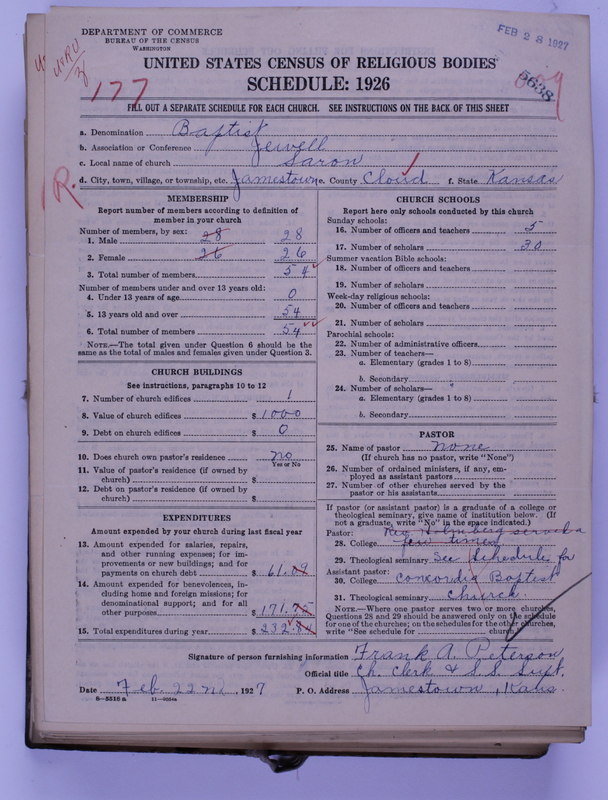 DEPARTMENT OF COMMERCE
BUREAU OF THE CENSUS
WASHINGTON
FEB 28 1927
177
5638
UNITED STATES CENSUS OF RELIGIOUS BODIES
SCHEDULE: 1926
FILL OUT A SEPARATE SCHEDULE FOR EACH CHURCH. SEE INSTRUCTIONS ON THE BACK OF THIS SHEET
a. Denomination Baptist
b. Association or Conference Jewell
c. Local name of church Saron
d. City, town, village, or township, etc. Jamestown e. County Cloud f. State Kansas
R.
MEMBERSHIP
Report number of members according to definition of member in your church
Number of members, by sex:
1. Male 28 28
2. Female 26 26
3. Total number of members 54
Number of members under and over 13 years old:
4. Under 13 years of age 0
5. 13 years old and over 54
6. Total number of members 54
NOTE.—The total given under Question 6 should be the
same as the total of males and females given under Question 3.
CHURCH BUILDINGS
See instructions, paragraphs 10 to 12
7. Number of church edifices 1
8. Value of church edifices $ 1000
9. Debt on church edifices $ 0
10. Does church own pastor's residence no
Yes or No
11. Value of pastor's residence (if owned by
church) $
12. Debt on pastor's residence (if owned by
church) $
EXPENDITURES
Amount expended by your church during last fiscal year
13. Amount expended for salaries, repairs,
and other running expenses; for im-
provements or new buildings; and for
payments on church debt $ 61.
14. Amount expended for benevolences, in-
cluding home and foreign missions; for
denominational support; and for all
other purposes $ 171.
15. Total expenditures during year $ 232.
CHURCH SCHOOLS
Report here only schools conducted by this church
Sunday schools:
16. Number of officers and teachers 5
17. Number of scholars 30
Summer vacation Bible schools:
18. Number of officers and teachers
19. Number of scholars
Week-day religious schools:
20. Number of officers and teachers
21. Number of scholars
Parochial schools:
22. Number of administrative officers
23. Number of teachers—
a. Elementary (grades 1 to 8)
b. Secondary
24. Number of scholars—
a. Elementary (grades 1 to 8)
b. Secondary
PASTOR
25. Name of pastor none
(If church has no pastor, write "None")
26. Number of ordained ministers, if any, em-
ployed as assistant pastors
27. Number of other churches served by the
pastor or his assistants
If pastor (or assistant pastor) is a graduate of a college or
theological seminary, give name of institution below. (If
not a graduate, write "No" in the space indicated.)
Pastor: Rev Holmberg served a
28. College few times
29. Theological seminary See Schedule for
Assistant pastor:
30. College Concordia Baptist
31. Theological seminary Church
NOTE.—Where one pastor serves two or more churches,
Questions 28 and 29 should be answered only on the schedule
for one of the churches; on the schedules for the other churches,
write "See schedule for church."
Signature of person furnishing information Frank A. Peterson
Official title Ch. Clerk & S.S. Supt.
Date Feb. 22nd, 1927 P. O. Address Jamestown, Kans.
8—5518 a 11—9084a